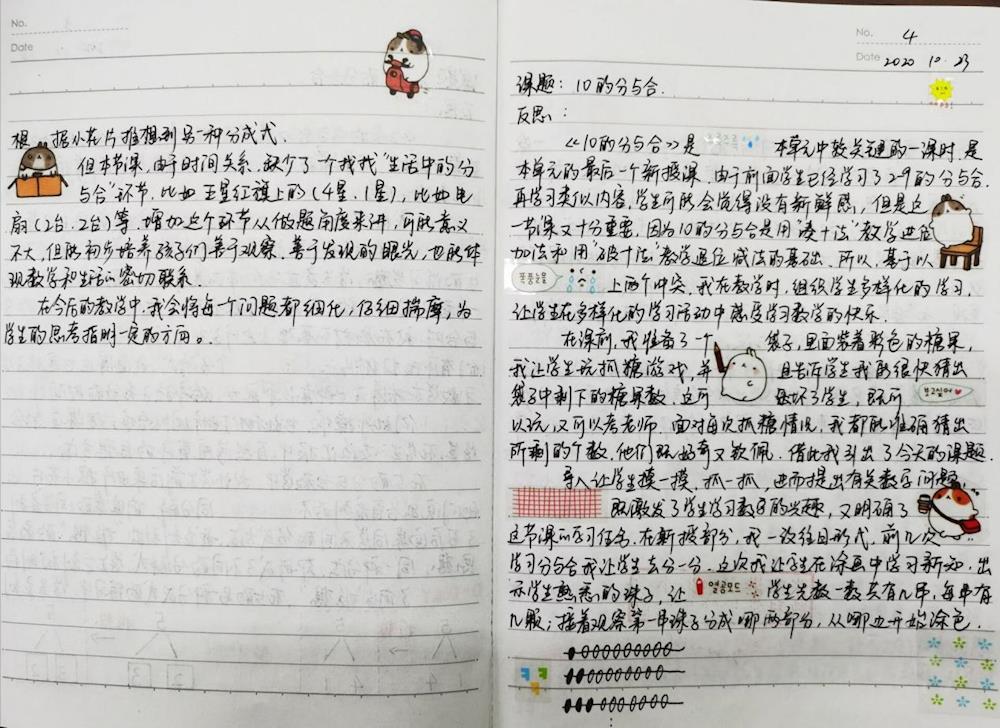 No.
Date
根据小花片推想到另一种分成式.
但本节课,由于时间关系,缺少了一个找找"生活中的分
与合"环节,比如五星红旗上的(4星、1星),比如电
扇(2台、2台)等,增加这个环节从做题角度来讲,可能意义
不大,但能初步培养孩子们善于观察、善于发现的眼光,也能体
现数学和生活的密切联系.
在今后的教学中,我会将每一个问题都细化,仔细揣摩,为
学生的思考指明一定的方向。
No. 4
Date 2020 10.23
课题: 10的分与合.
反思:
《10的分与合》是本单元中较关键的一课时,是
本单元的最后一个新授课.由于前面学生已经学习了2-9的分与合.
再学习类似内容,学生可能会觉得没有新鲜感,但是这
一节课又十分重要,因为10的分与合是用"凑十法"教学进位
加法和用"破十法"教学退位减法的基础.所以,基于以
上两个冲突,我在教学时,组织学生多样化的学习,
让学生在多样化的学习活动中感受学习数学的快乐.
在课前,我准备了一个袋子,里面装着彩色的糖果,
我让学生玩抓糖游戏,并且告诉学生我能很快猜出
袋子中剩下的糖果数,这可乐坏了学生,既可
보고싶어
以玩,又可以考老师.面对每次抓糖情况,我都能准确猜出
所剩的个数,他们既好奇又敬佩.借此我引出了今天的课题.
导入让学生摸一摸、抓一抓,进而提出有关数学问题,
既激发了学生学习数学的兴趣,又明确了
这节课的学习任务.在新授部分,我一改往日形式,前几次
学习分与合我让学生去分一分,这次我让学生在涂画中学习新知,出
示学生熟悉的珠子,让
열공모드
学生先数一数共有几串,每串有
几颗;接着观察第一串珠子分成哪两部分,从哪边开始涂色.